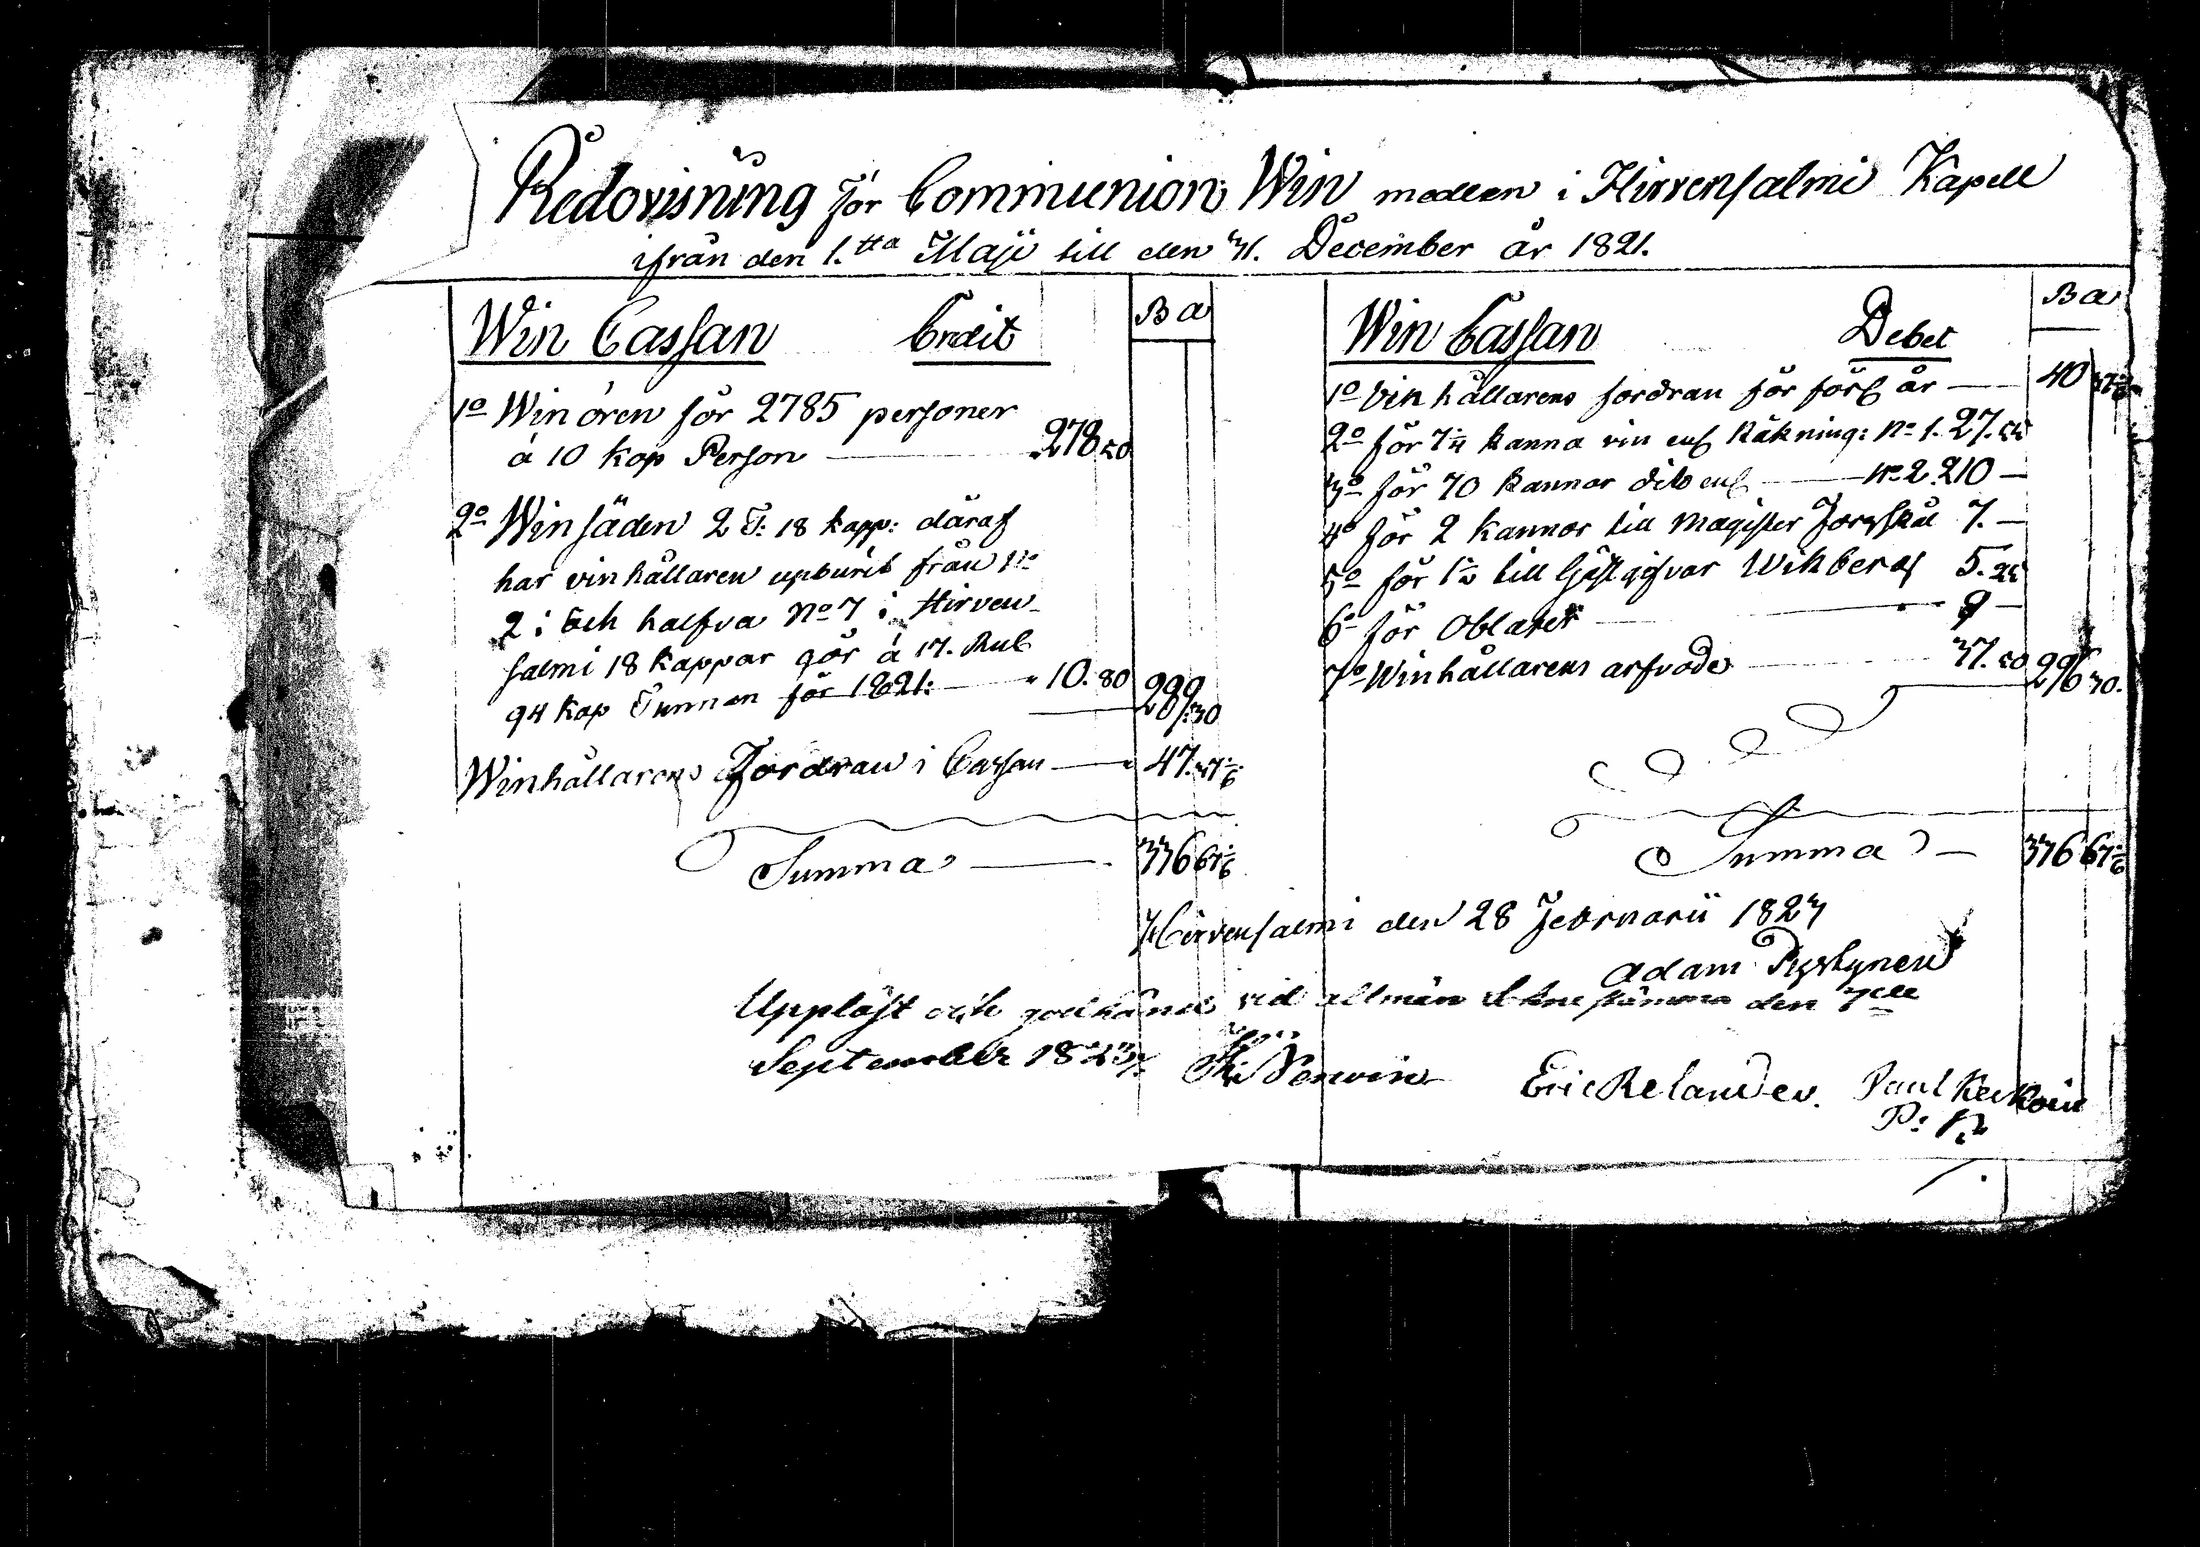 Redovisning för Communion Win medlen i Hirvensalmi Kapell
ifrån den 1.tta Maji till den 31. December år 1821.
Win Cassan Credit B A
1o Win ören för 2785 personer
á 10 kop Person 278 50
2o Winsäden 2 T: 18 kapp: däraf
har vinhållaren upburit från No
2 i och halfva No 7 i Hirven-
salmi 18 kappar gör á 17. Rub
94 kop Tunnan för 1821: 10. 80 289. 30
Winhållarens Fordran i Cassan 47. 37
Summa 336 67
Win Cassan Debet B A
1o Vinhållarens fordran för förl år 40 37
2o för kanna vin enl Räkning: No 1. 27.
3o för 70 kannor dito enl No 2 210 —
4o för 2 kannor till Magister 7. —
5o för 1½ till Gästgifvar Wikberg 5. 25
6o för Oblater 9 —
7o Winhållarens arfvode 37. 50 296 30.
Summa 336 67
Hirvensalmi den 28 Februarii 1823
Adam Pyykynen
Uppläst och godkänd vid allmän Sockne stämma den 7de
September 1823.
Eric Relander. Paul
P: